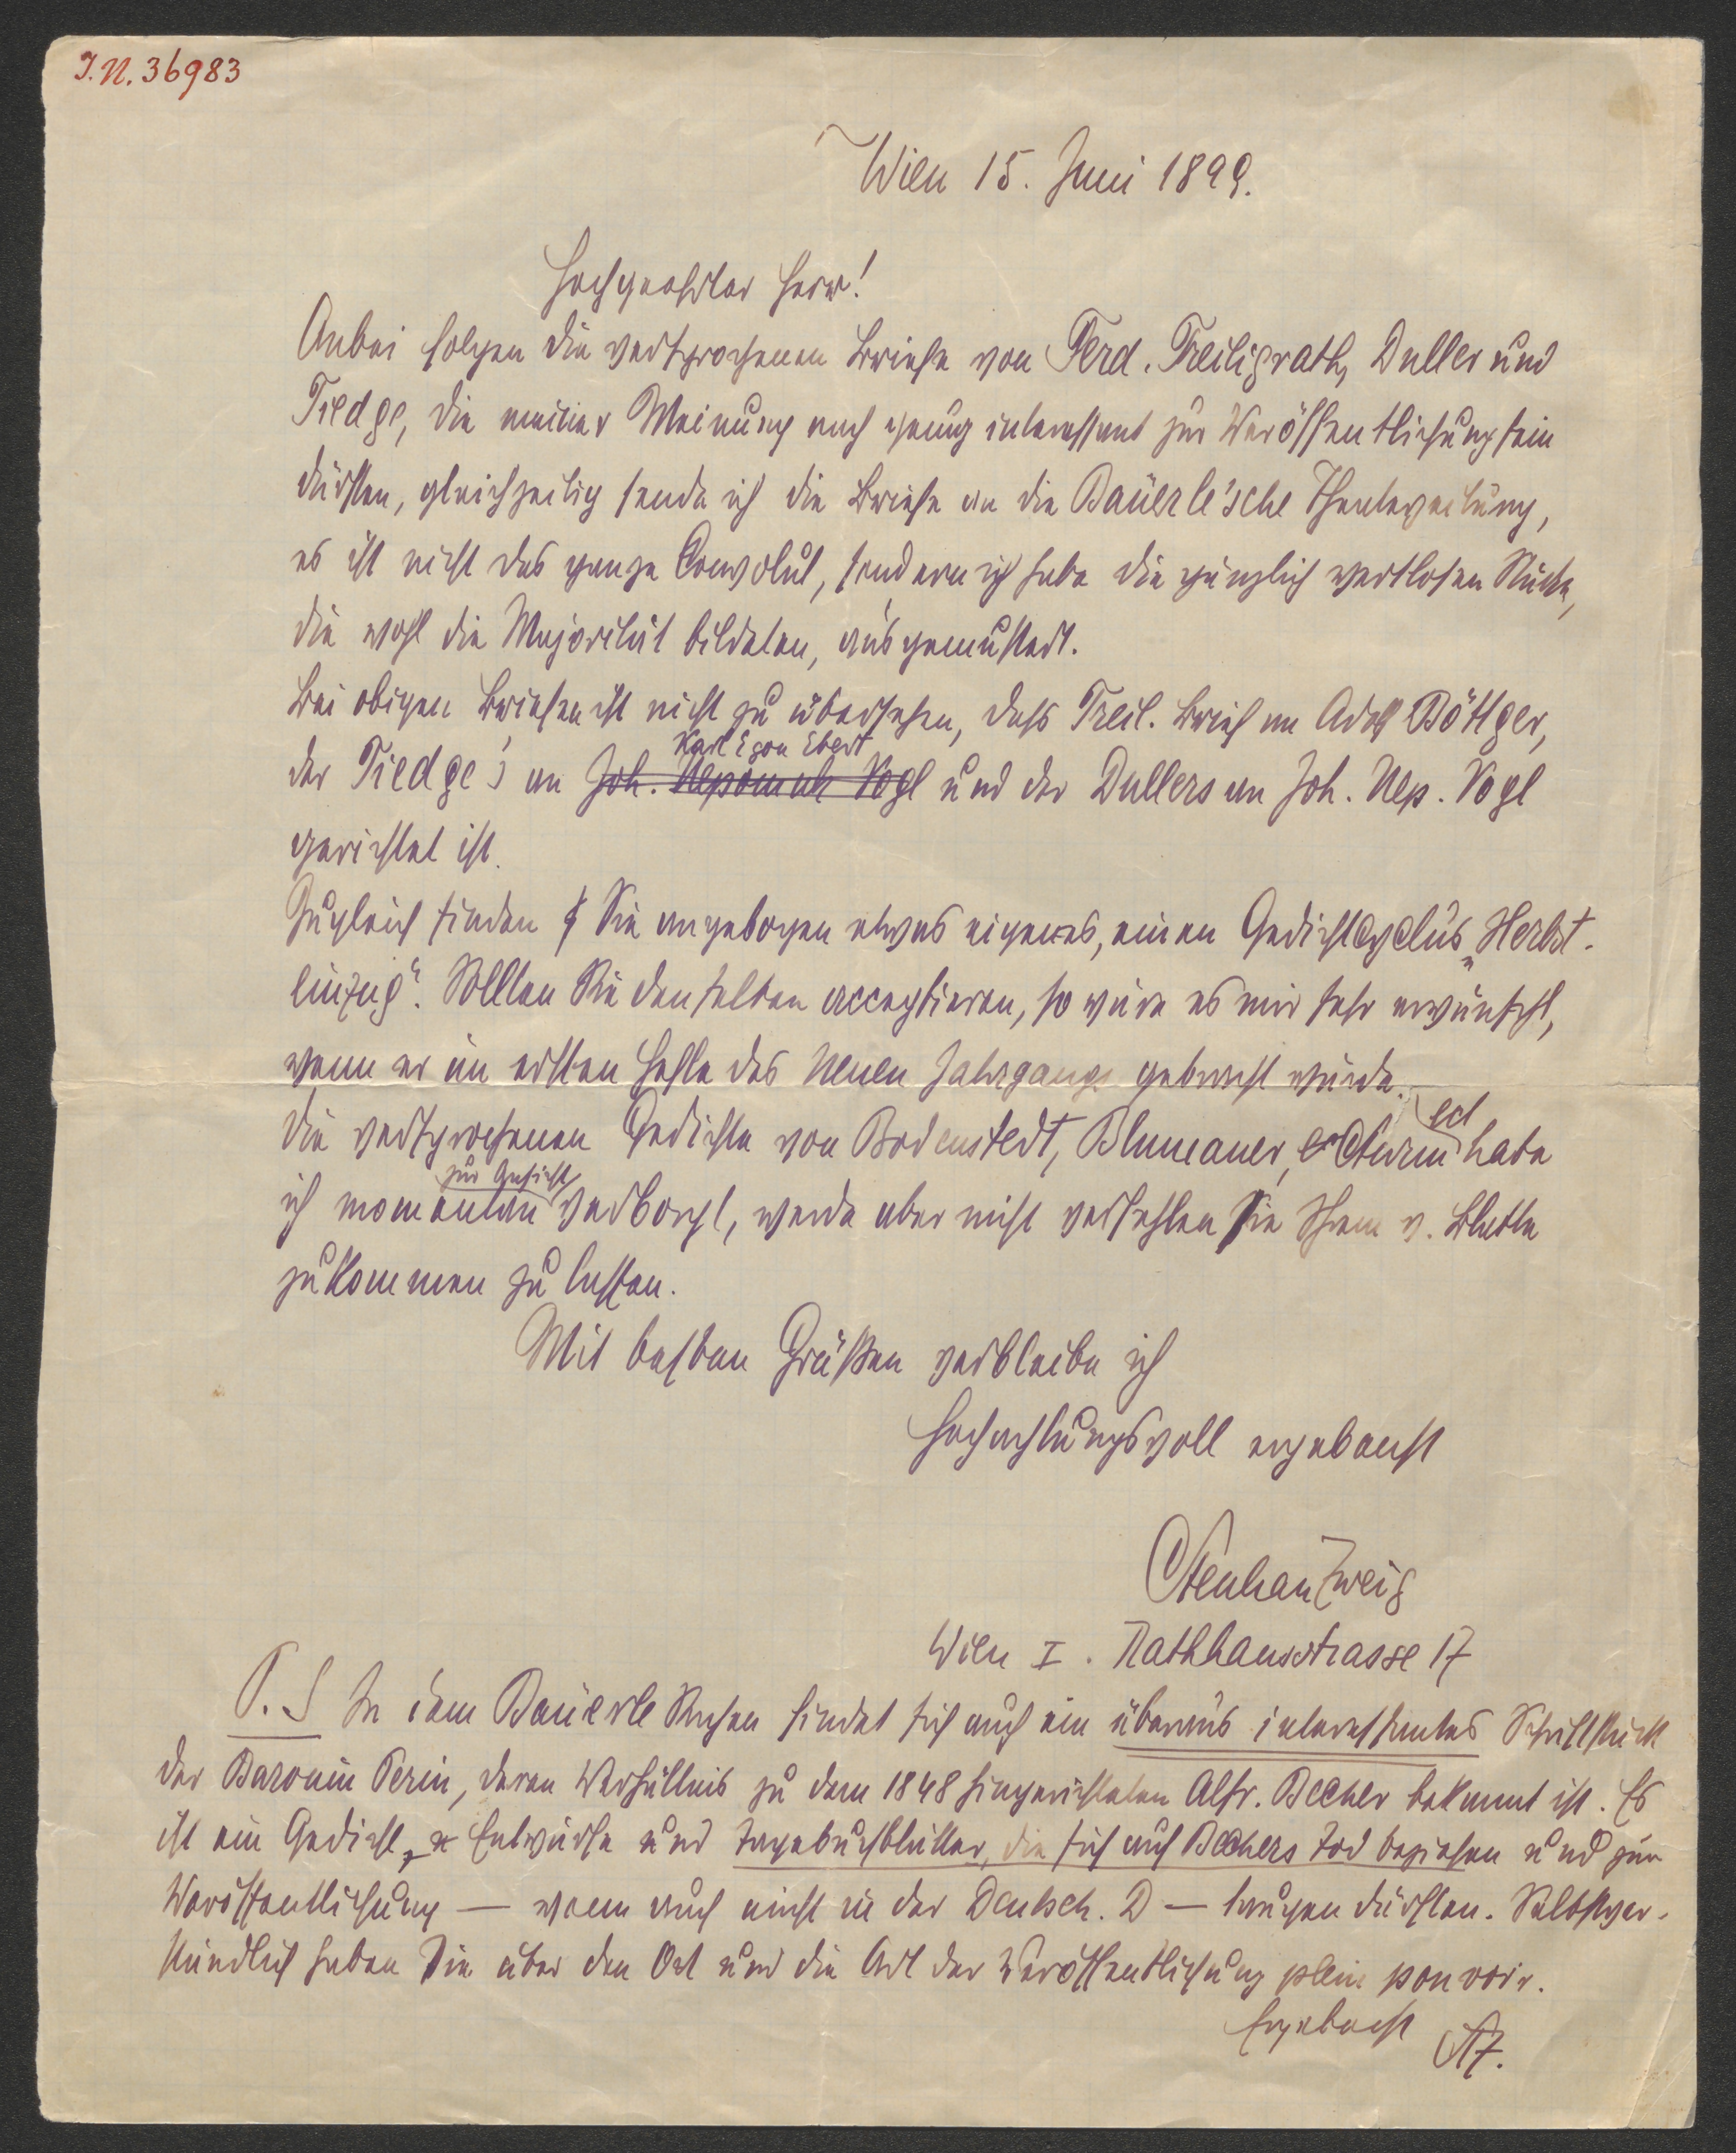 I.N. 36983
Wien 15. Juni 1899.
Hochgeehrter Herr!
Anbei folgen die versprochenen Briefe von Ferd. Freiligrath, Duller und
Tiedge, die meiner Meinung nach genug interessant zur Veröffentlichung sein
dürften, gleichzeitig sende ich die Briefe an die Bäuerle'sche Theaterzeitung,
es ist nicht das ganze Convolut, sondern ich habe die gänzlich wertlosen Stücke,
die wohl die Majorität bildeten, ausgemustert.
Bei obigen Briefen ist nicht zu übersehen, dass Freil. Brief an Adolf Böttger,
Karl Egon Ebert
der Tiedge's an Joh. Nepomuk Vogl und der Dullers an Joh. Nep. Vogl
gerichtet ist.
Zugleich finden Sie angebogen etwas eigenes, einen Gedichtcyclus „Herbst-
einzug“. Sollten Sie denselben acceptieren, so wäre es mir sehr erwünscht,
wenn er im ersten Hefte des neuen Jahrgangs gebracht würde.
Die versprochenen Gedichte von Bodenstedt, Blumauer, Sturm ect habe
zur Ansicht
ich momentan verborgt, werde aber nicht verfehlen sie Ihrem v. Blatte
zukommen zu lassen.
Mit besten Grüßen verbleibe ich
hochachtungsvoll ergebenst
Stefan Zweig
Wien I. Rathhausstrasse 17
P.S In dem Bäuerle Sachen findet sich auch ein überaus interessantes Schriftstück
der Baronin Perin, deren Verhältnis zu dem 1848 hingerichteten Alfr. Becher bekannt ist. Es
ist ein Gedicht, Entwürfe und Tagebuchblätter, die sich auf Bechers Tod beziehen und zur
Veröffentlichung — wenn auch nicht in der Deutsch. D — taugen dürften. Selbstver-
ständlich haben Sie über den Ort und die Art der Veröffentlichung plein pouvoir.
Ergebenst SZ.